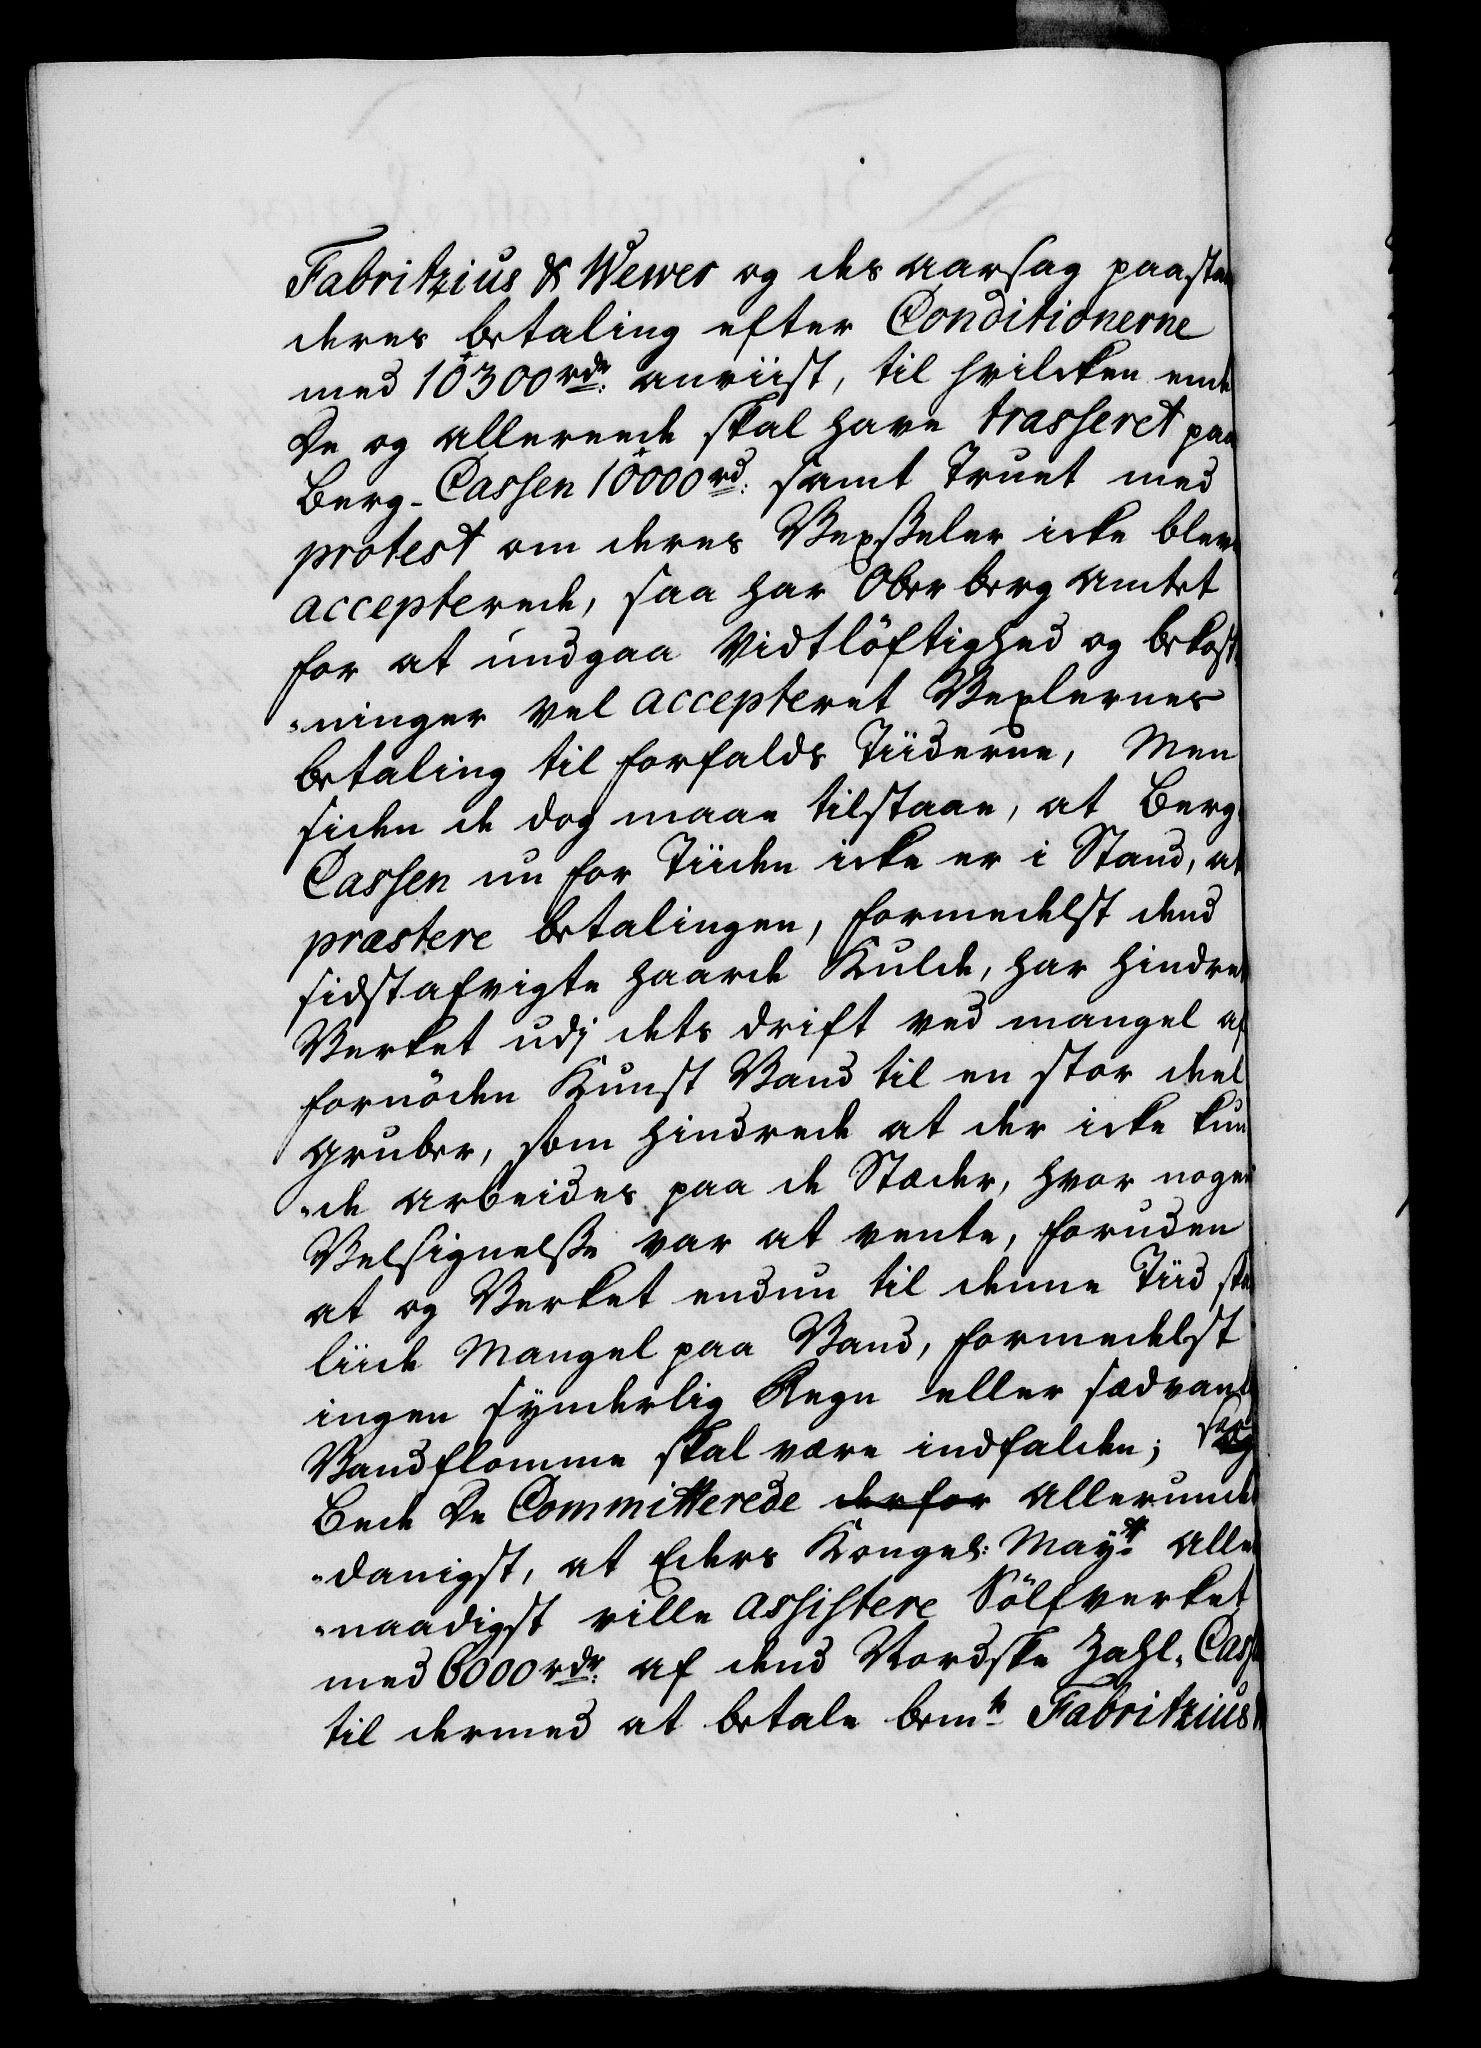 Fabritzius & Wewer og des aarsag paastaa
deres betaling efter Conditionerne
med 10300 rdr: anviist, til hvilcken ende
De og allerede skal have trasseret paa
Berg-Cassen 10000 rd: samt Truet med
protest om deres Vexßeler icke blev
accepterede, saa har Ober berg Amtet
for at undgaa Vidtlöftighed og bekost
-ninger vel accepteret Vexlernes
betaling til forfalds Tiiderne, Men
siden de dog maae tilstaae, at Berg
Cassen nu for Tiiden icke er i Stand, at
præstere betalingen, formedelst dend
sidstafvigte haarde Kulde, har hindret
Verket udj dets drift ved mangel af
fornöden Kunst Vand til en stor deel
gruber, som hindrede at der icke kun
-de arbeides paa de Stæder, hvor nogen
Velsignelße var at vente, foruden
at og Verket endnu til denne Tiid skal
liide Mangel paa Vand, formedelst
ingen synderlig Regn eller sædvanl
Vandflomme skal være indfalden; saa
Bede De Committerede derfor allerunder
-danigst, at Eders Kongel: Mayt: aller
-naadigst ville assistere Sölfverket
med 6000 rdr: af dend Nordske Zahl-Cass
til dermed at betale bemte Fabritzius